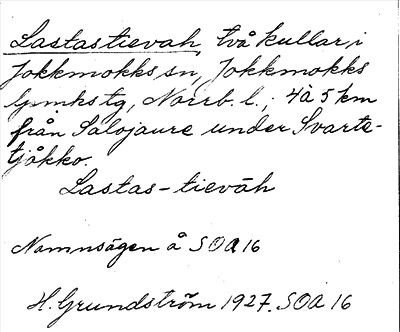 Lastastievah, två kullar, i
Jokkmokks sn, Jokkmokks
lpmhs tg, Norrb. l.; 4 à 5 km
från Salojaure under Svarte-
tjåkko.
Lastas-tievāh
Namnsägen å SOA 16
H. Grundström 1927. SOA 16